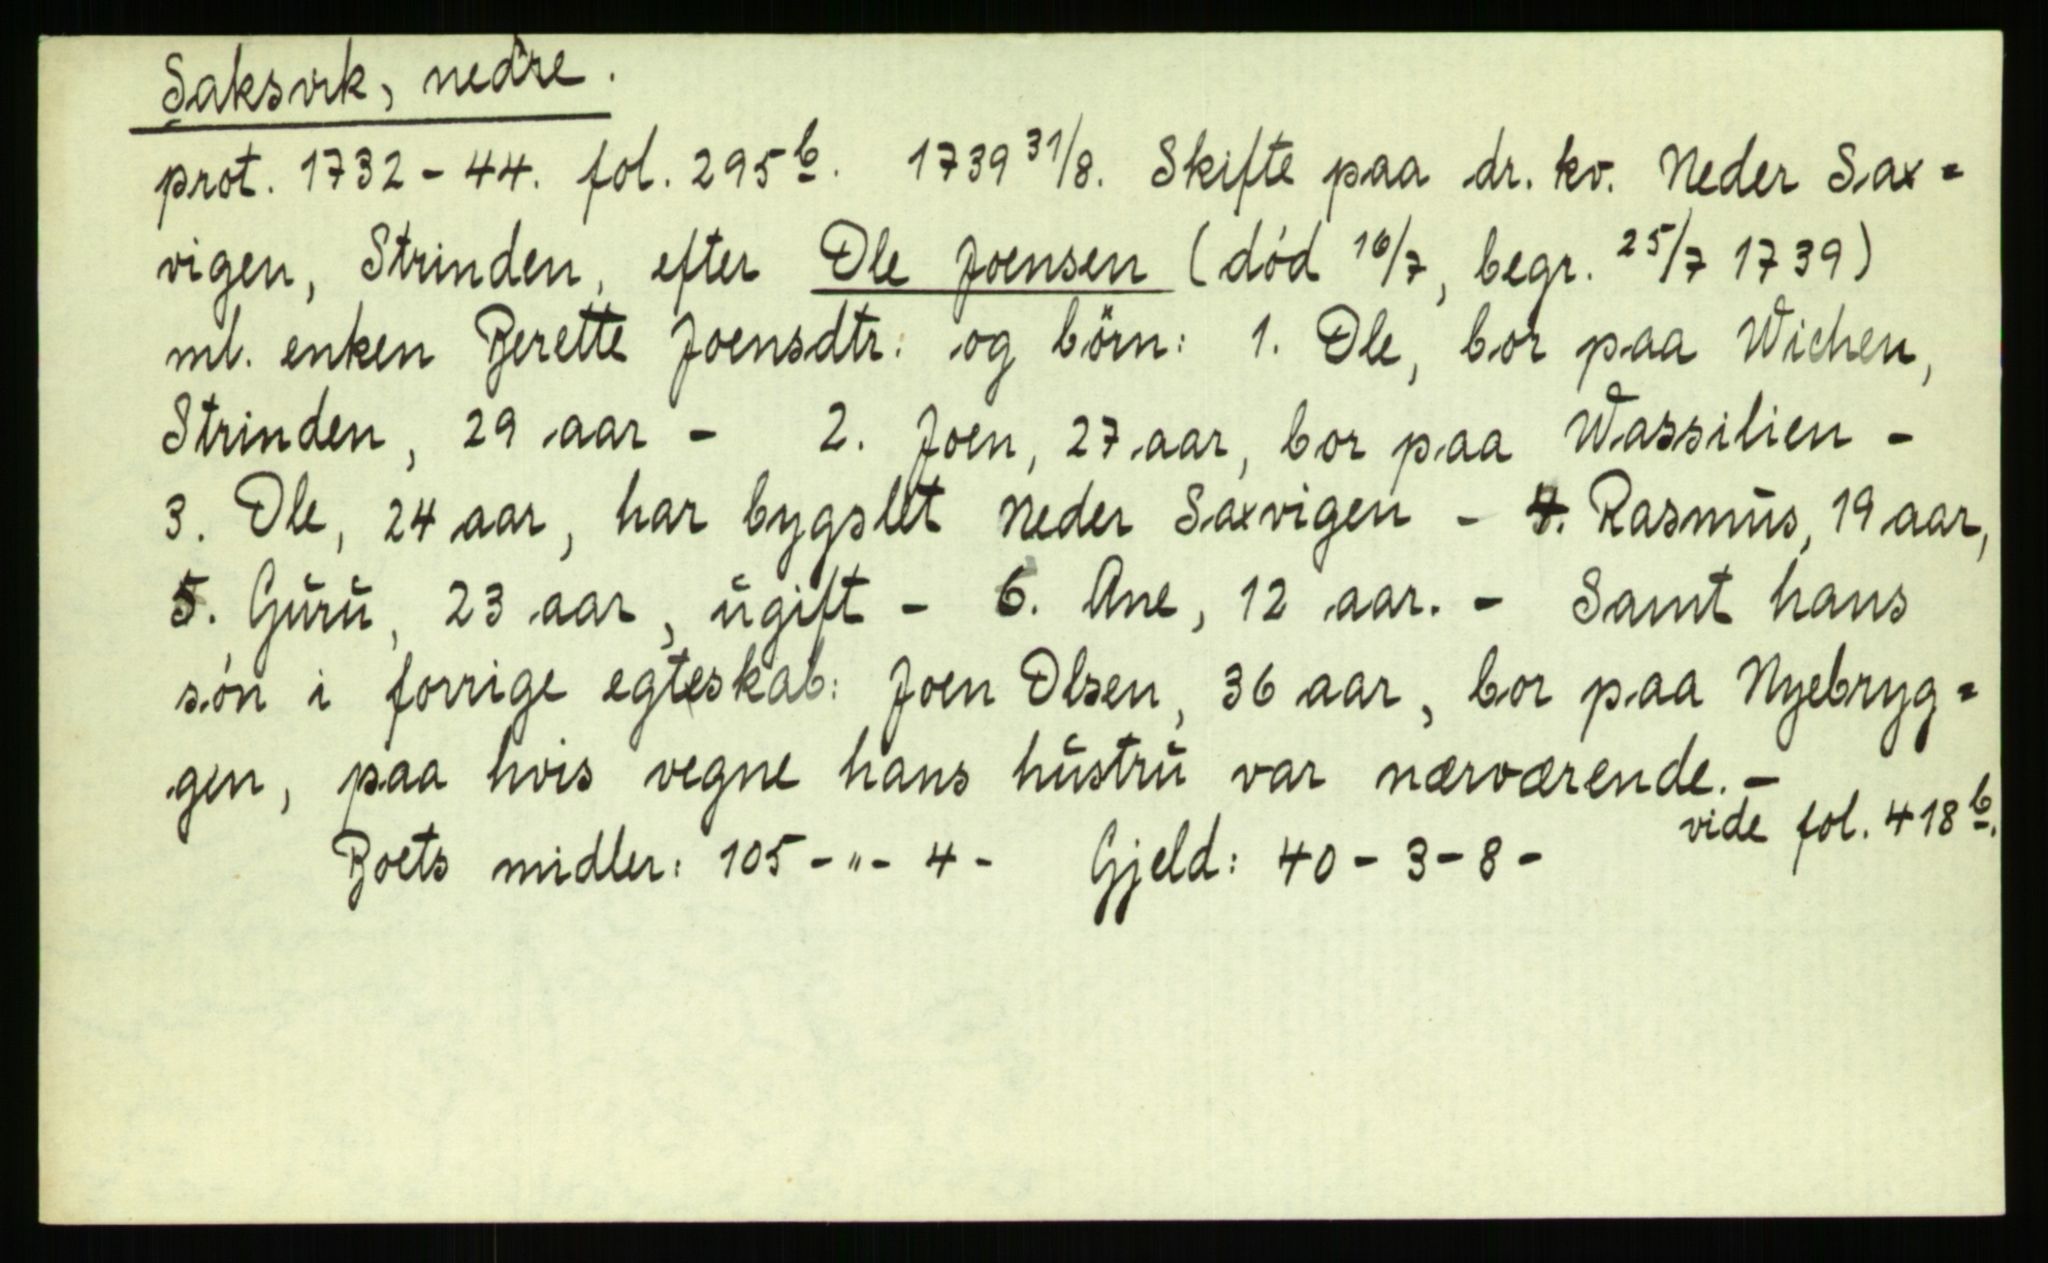 Saksvik, nedre.
prot. 1732-44. fol. 295b. 1739 31/8. Skifte paa dr. kv. Neder Sax=
vigen, Strinden, efter Ole Joensen (död 16/7, begr. 25/7 1739)
ml. enken Berette Joensdtr. og börn: 1. Ole, bor paa Wichen,
Strinden, 29 aar - 2. Joen, 27 aar, bor paa Wassilien -
3. Ole, 24 aar, har bygslet Neder Saxvigen - 4. Rasmus, 19 aar,
5. Guru, 23 aar, ugift - 6. Ane, 12 aar. - Samt hans
sön i forrige egteskab: Joen Olsen, 36 aar, bor paa Nyebryg=
gen, paa hvis vegne hans hustru var nærværende. -
vide fol. 418b.
Boets midler: 105 - " - 4 - Gjeld: 40 - 3 - 8 -